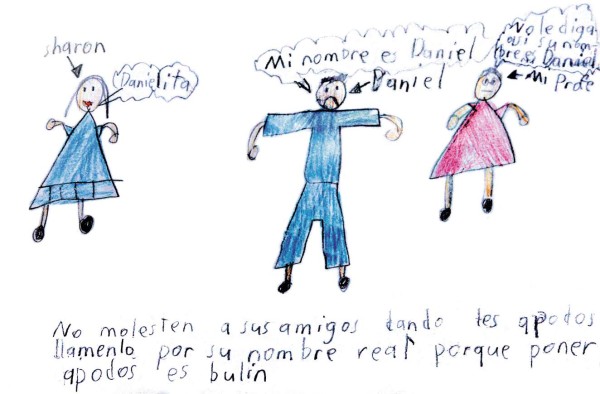 sharon
Danielita
Mi nombre es Daniel
Daniel
No le diga
así su nom
bre es Daniel
Mi Profe
No molesten a sus amigos dando les apodos
llamenlo por su nombre real porque poner
apodos es bulin